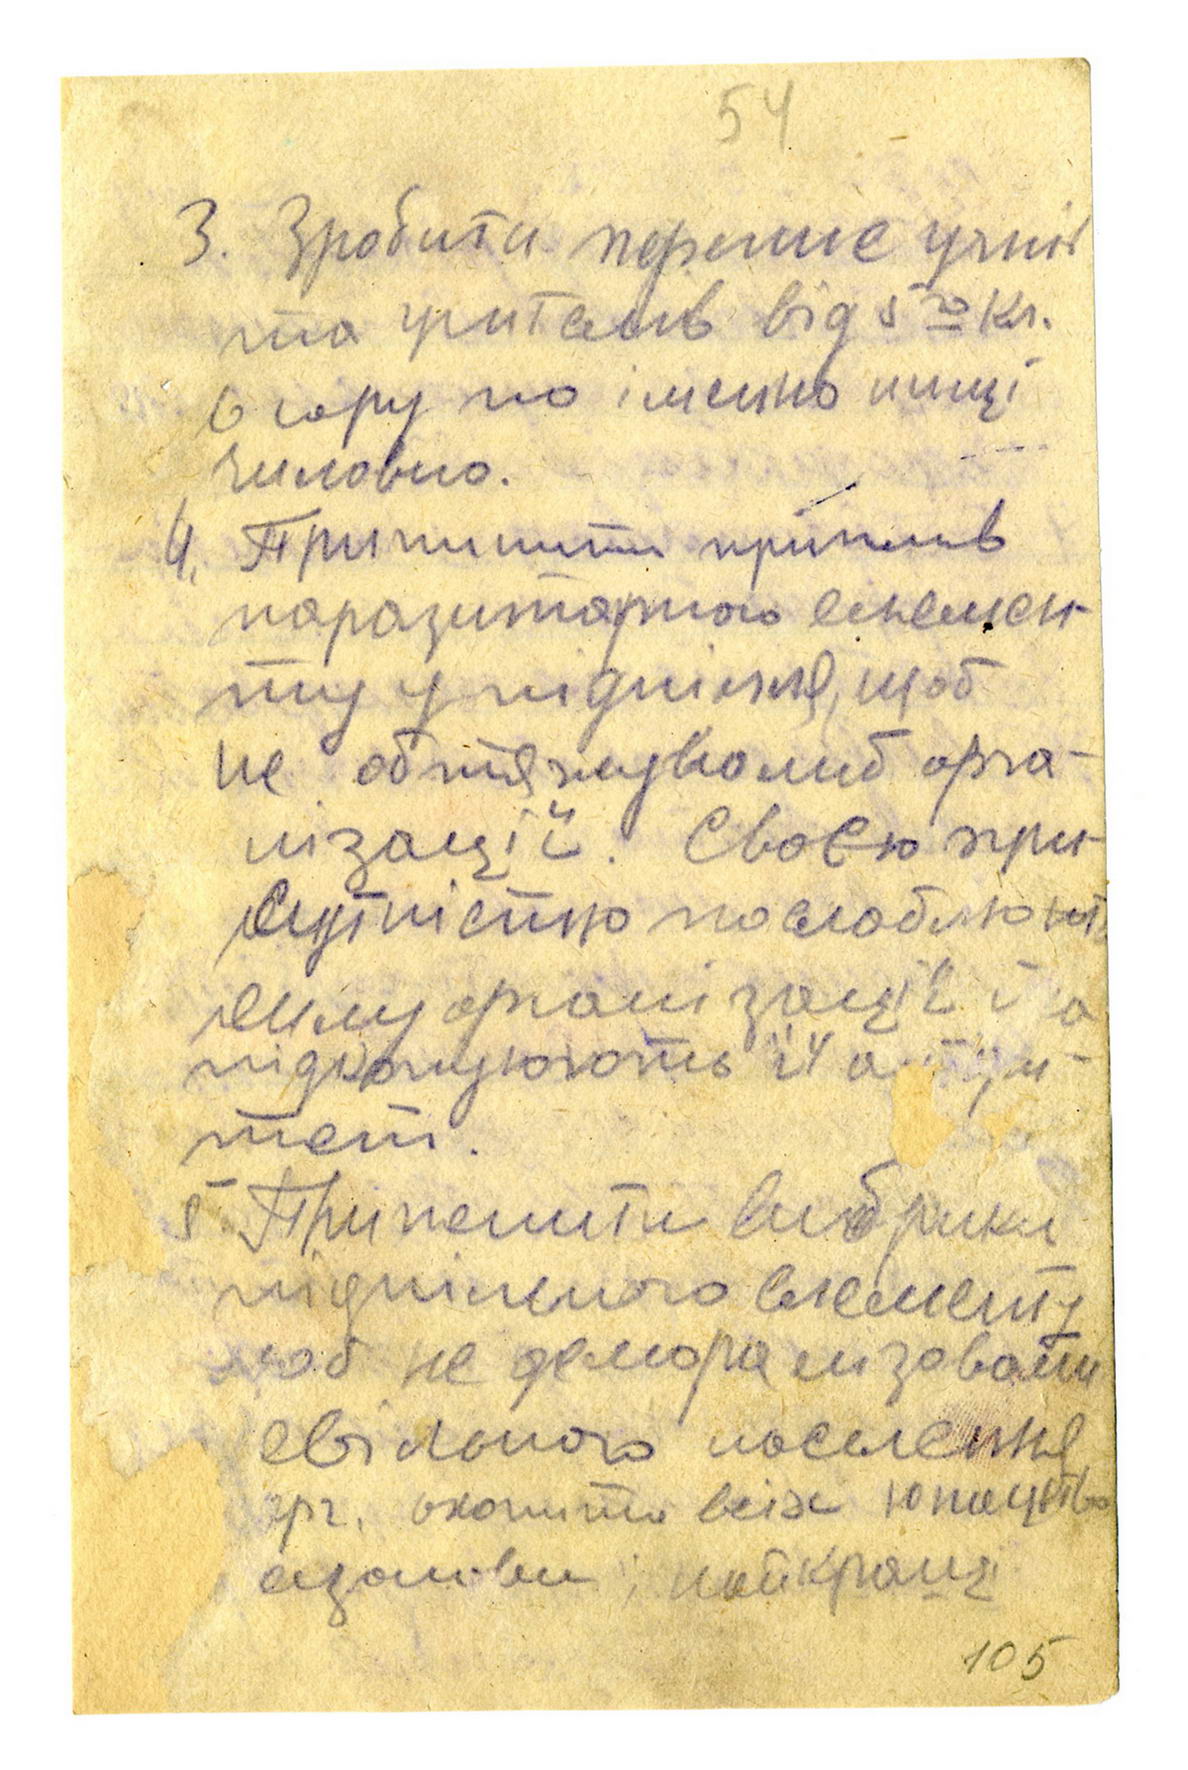 54
3. Зробити перепис учнів
та учителів від 5го кл.
в гору по іменно
числовно.
4. Припинити приплив
паразитарного елемен-
ту у підпілля, щоб
не обтяжувалиб орга-
нізації. Своєю при-
сутністю послаблюють
силу організації й
підкопують її
тет.
5. Припенити вибрики
підпільного елементу
щоб не деморалізовати
світлого поселення
орг. охопити всіх юнацтво
найкращі
105